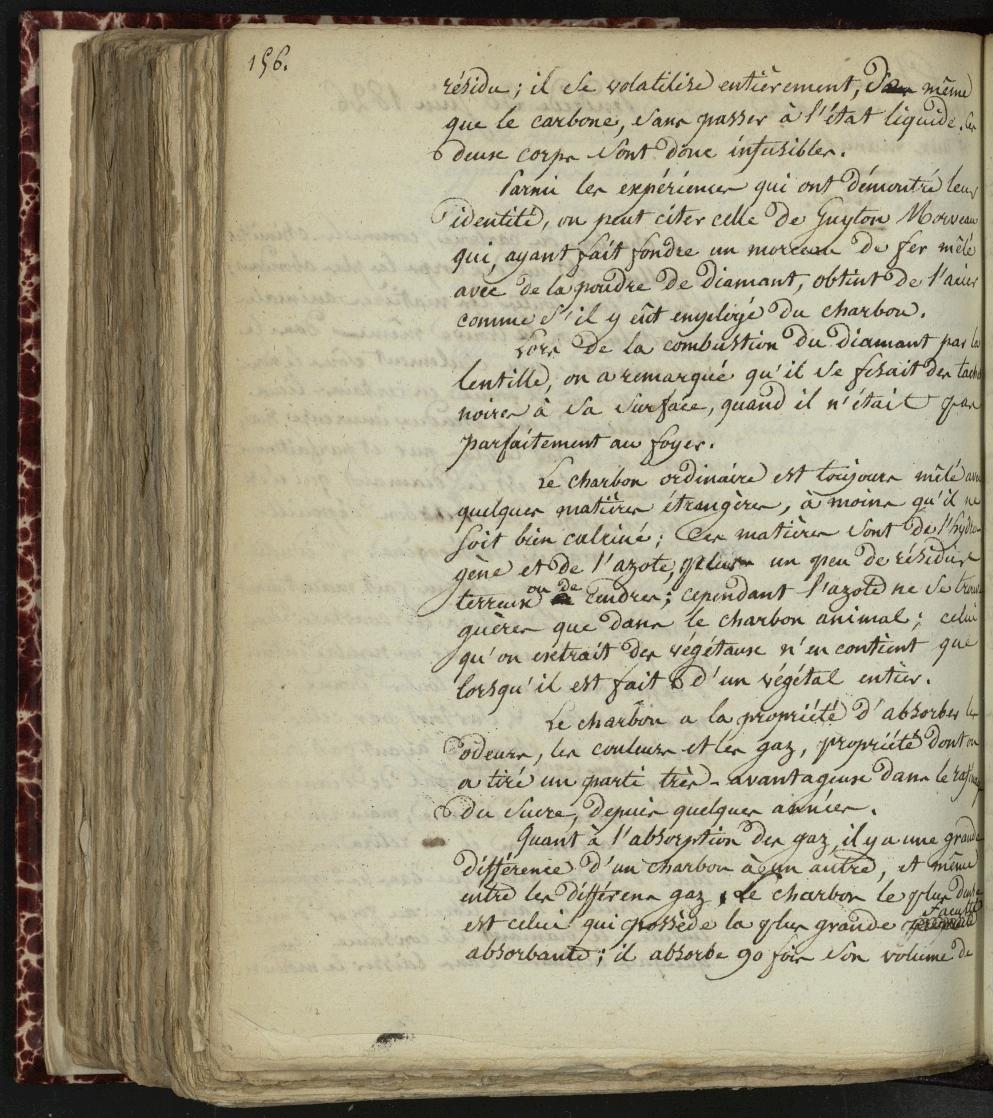 156.
résidu; il se volatilise entièrement, de même
que le carbone, sans passer à l'état liquide. Ces
deux corps sont donc infusibles.
Parmi les expériences qui ont démontré leur
identité, on peut citer celle de Guyton Morveau
qui, ayant fait fondre un morceau de fer mêlé
avec de la poudre de diamant, obtint de l'acier
comme s'il y eût employé du charbon.
Lors de la combustion du diamant par la
lentille, on a remarqué qu'il se fesait des taches
noires à sa surface, quand il n'était pas
parfaitement au foyer.
Le charbon ordinaire est toujours mêlé avec
quelques matières étrangères, à moins qu'il ne
soit bien calciné; Ces matières sont de l'hydro-
gène et de l'azote, plus un peu de résidus
terreux ou de Cendres; cependant l'azote ne se trouve
guères que dans le charbon animal; celui
qu'on extrait des végétaux n'en contient que
lorsqu'il est fait d'un végétal entier.
Le charbon a la propriété d'absorber les
odeurs, les couleurs et les gaz, propriété dont on
a tiré un parti très-avantageux dans le raffinage
du sucre, depuis quelques années.
Quant à l'absorption des gaz, il y a une grande
différence d'un charbon à un autre, et même
entre les différens gaz. Le charbon le plus dense
est celui qui possède la plus grande faculté
absorbante; il absorbe 90 fois son volume de